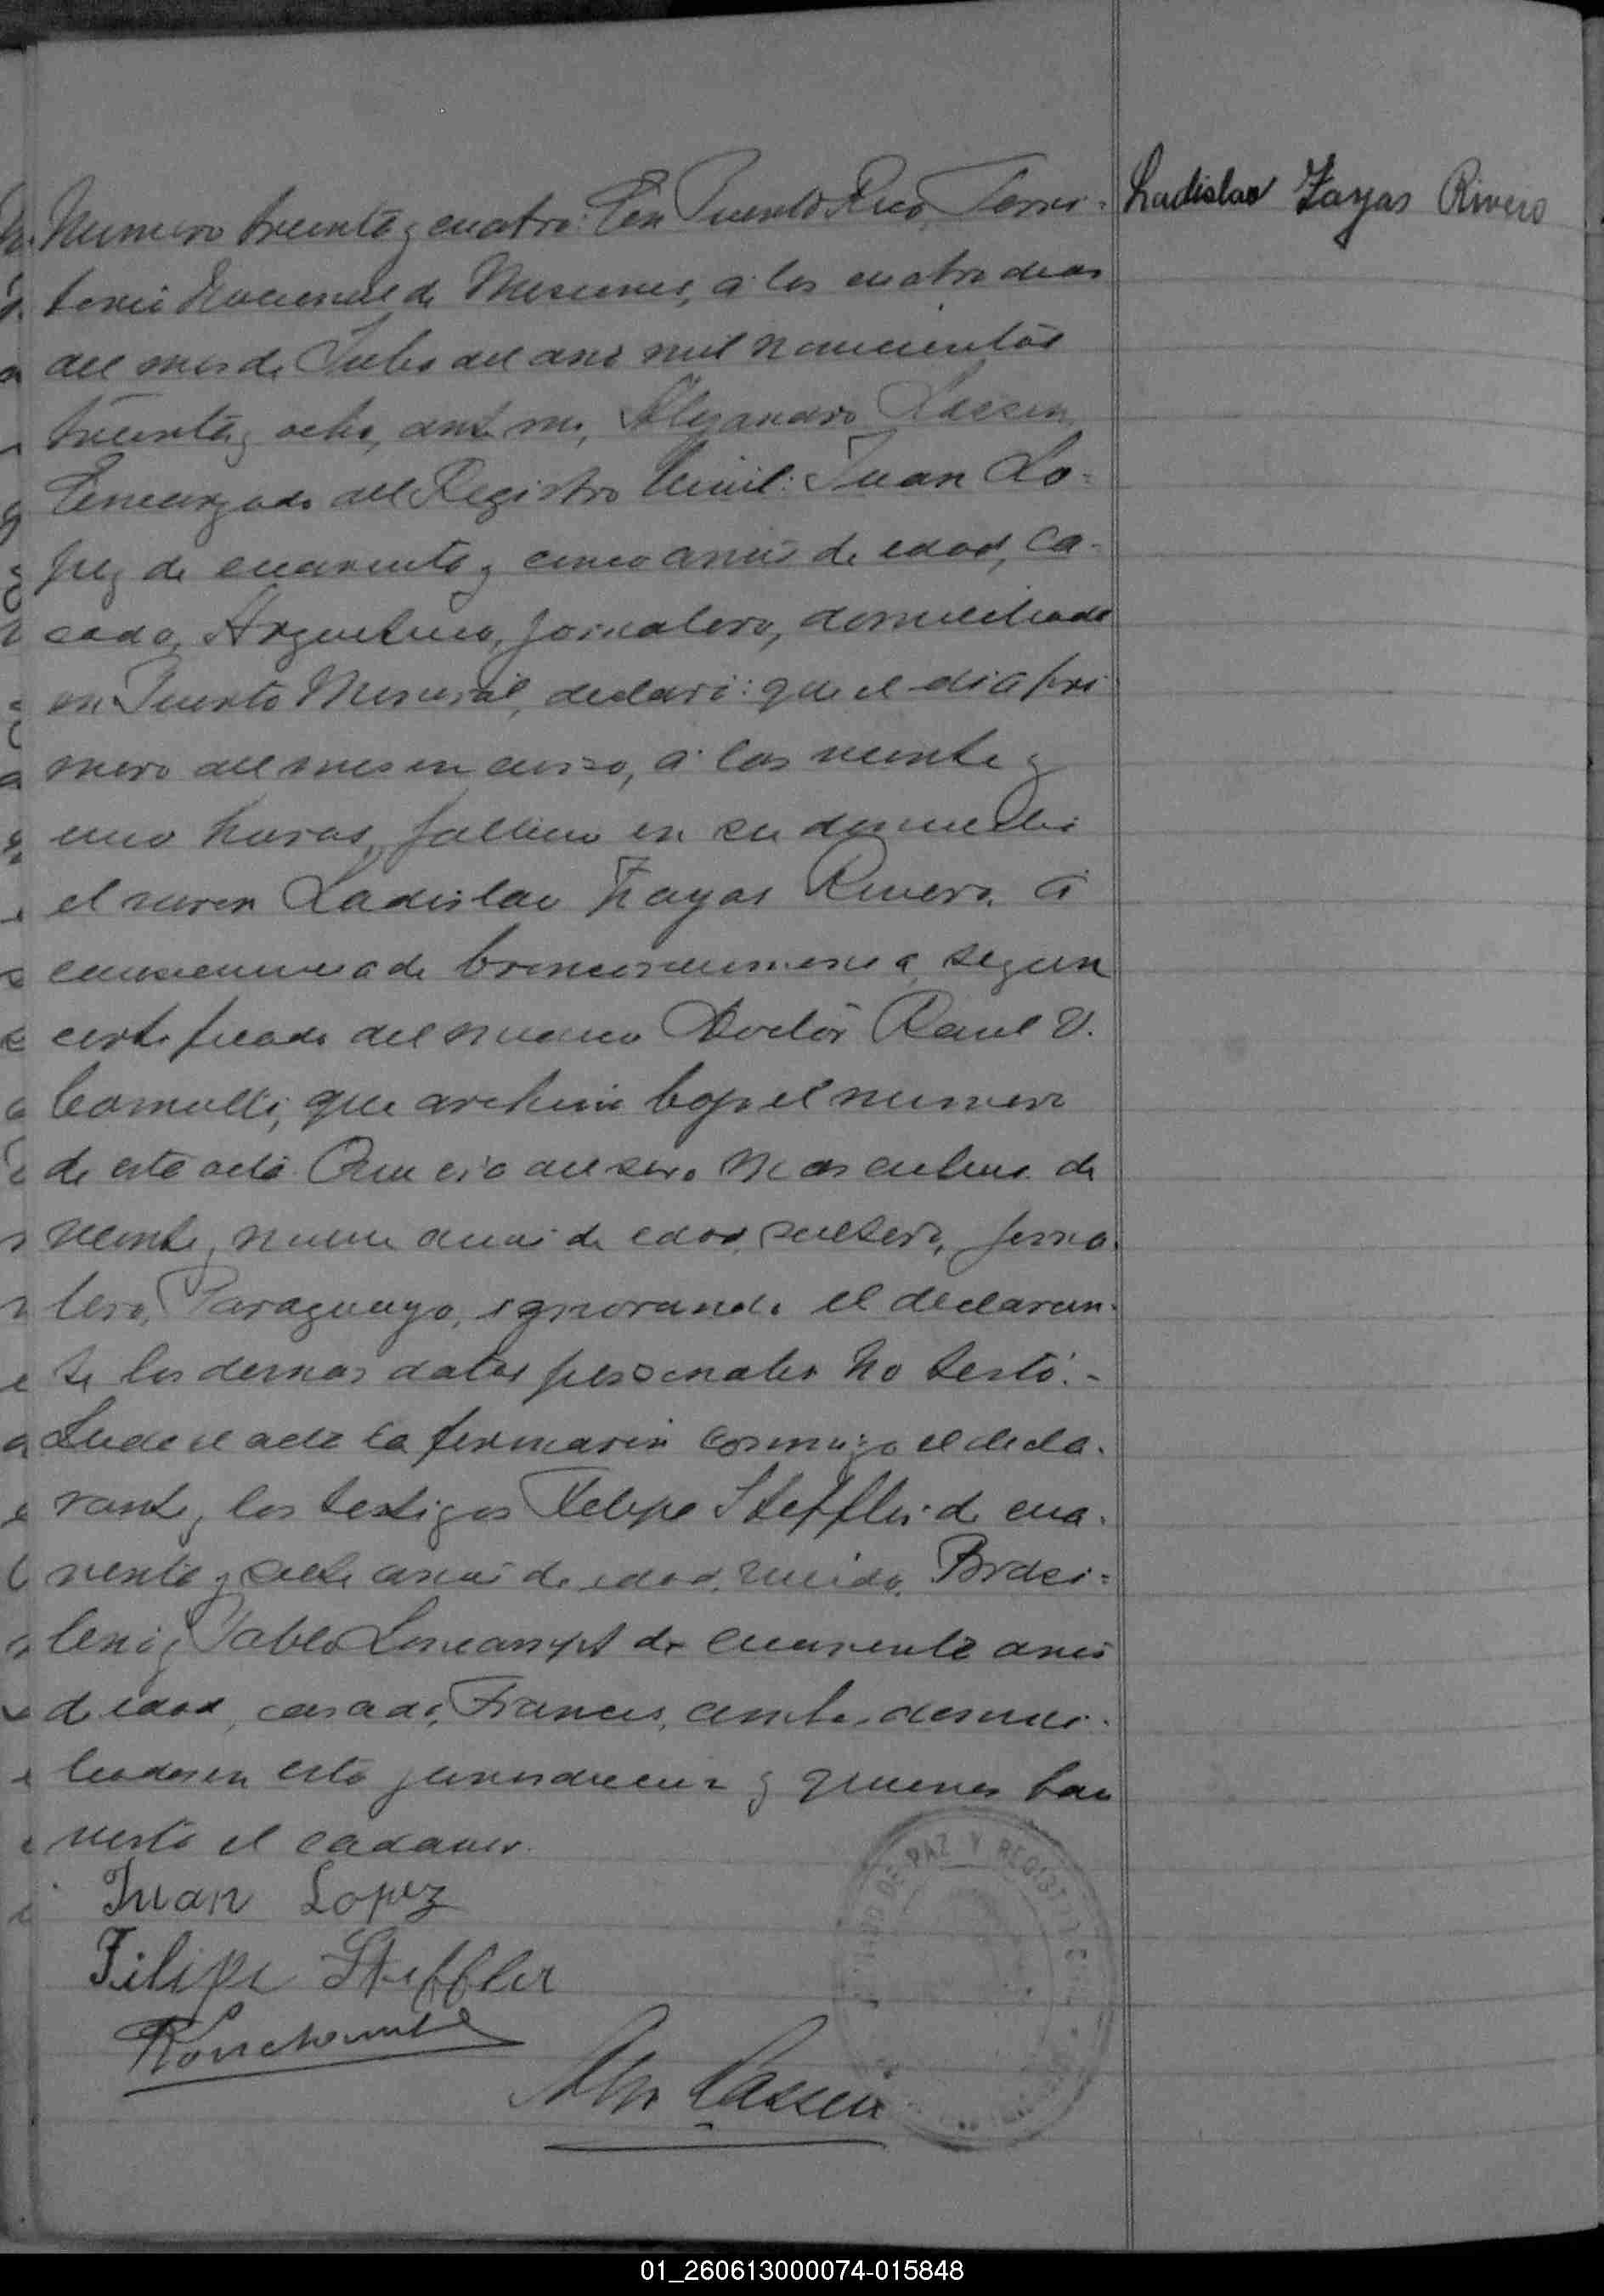 Ladislao Zayas Rivero
Numero treinta y cuatro: En Puerto Rico, Terri-
torio Nacional de Misiones, a los cuatro dias
del mes de Julio del año mil novecientos
treinta y ocho, ante mi, Alejandro Lassen,
Encargado del Registro Civil: Juan Lo-
pez de cuarenta y cinco años de edad, ca-
sado, Argentino, jornalero, domiciliado
en Puerto Mineral, declaró: que el dia pri-
mero del mes en curso, a las veinte y
una horas, fallecio en su domicilio
el varon Ladislao Zayas Rivero, a
consecuencia de bronconeumonia, segun
certificado del medico Doctor Raul V.
que archivo bajo el numero
de este acta. Que era del sexo masculino de
veinte y nueve años de edad, soltero, jorna-
lero, Paraguayo, ignorando el declaran-
te los demas datos personales. No testó.-
Leida el acta la firmaron conmigo el decla-
rante y los testigos Felipe Steffler de cua-
renta y siete años de edad, viudo, Brasi-
leno y Pablo de cuarenta años
de edad, casado, Frances, ambos domici-
liados en esta jurisdiccion y quienes han
visto el cadaver.
Juan Lopez
Filipe Steffler
Alej Lassen
DE PAZ Y REGISTRO
01_260613000074-015848